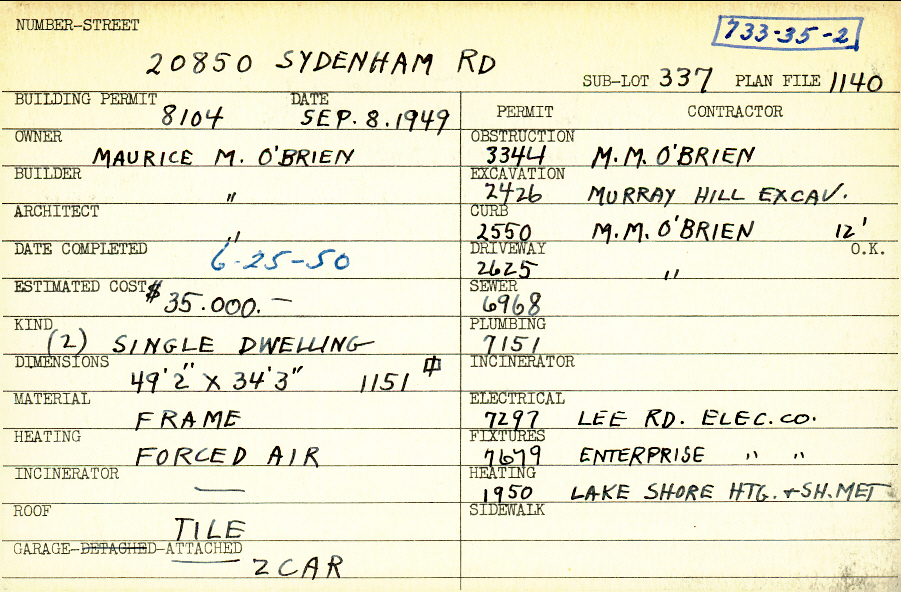 NUMBER-STREET
733-35-2
20850 SYDENHAM RD
SUB-LOT 337 PLAN FILE 1140
BUILDING PERMIT 8104 DATE SEP. 8. 1949
OWNER MAURICE M. O'BRIEN
BUILDER "
ARCHITECT "
DATE COMPLETED 6-25-50
ESTIMATED COST $35.000.—
KIND (2) SINGLE DWELLING
DIMENSIONS 49'2" X 34'3" 1151
MATERIAL FRAME
HEATING FORCED AIR
INCINERATOR —
ROOF TILE
GARAGE-DETACHED-ATTACHED 2 CAR
PERMIT CONTRACTOR
OBSTRUCTION 3344 M.M. O'BRIEN
EXCAVATION 2426 MURRAY HILL EXCAV.
CURB 2550 M.M. O'BRIEN 12'
DRIVEWAY 2625 " O.K.
SEWER 6968
PLUMBING 7151
INCINERATOR
ELECTRICAL 7297 LEE RD. ELEC. CO.
FIXTURES 7679 ENTERPRISE " "
HEATING 1950 LAKE SHORE HTG. + SH. MET
SIDEWALK